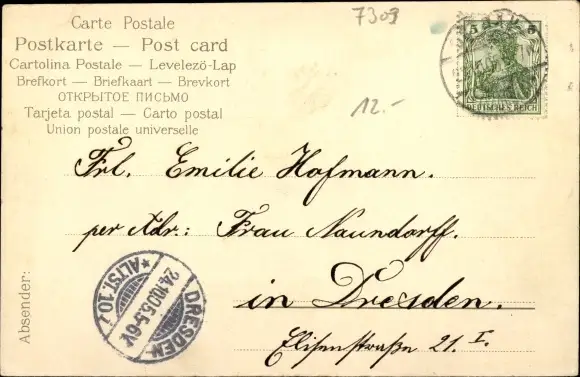 Carte Postale
Postkarte — Post card
Cartolina Postale — Levelezö-Lap
Brefkort — Briefkaart — Brevkort
ОТКРЫТОЕ ПИСЬМО
Tarjeta postal — Carto postal
Union postale universelle
7309
12.-
5 5
DEUTSCHES REICH
Frl. Emilie Hofmann.
per Adr.: Frau Naundorff.
in Dresden.
Elisenstraße 21. I.
Absender:
DRESDEN
24.10.05.5-6V.
*ALTST. 10.